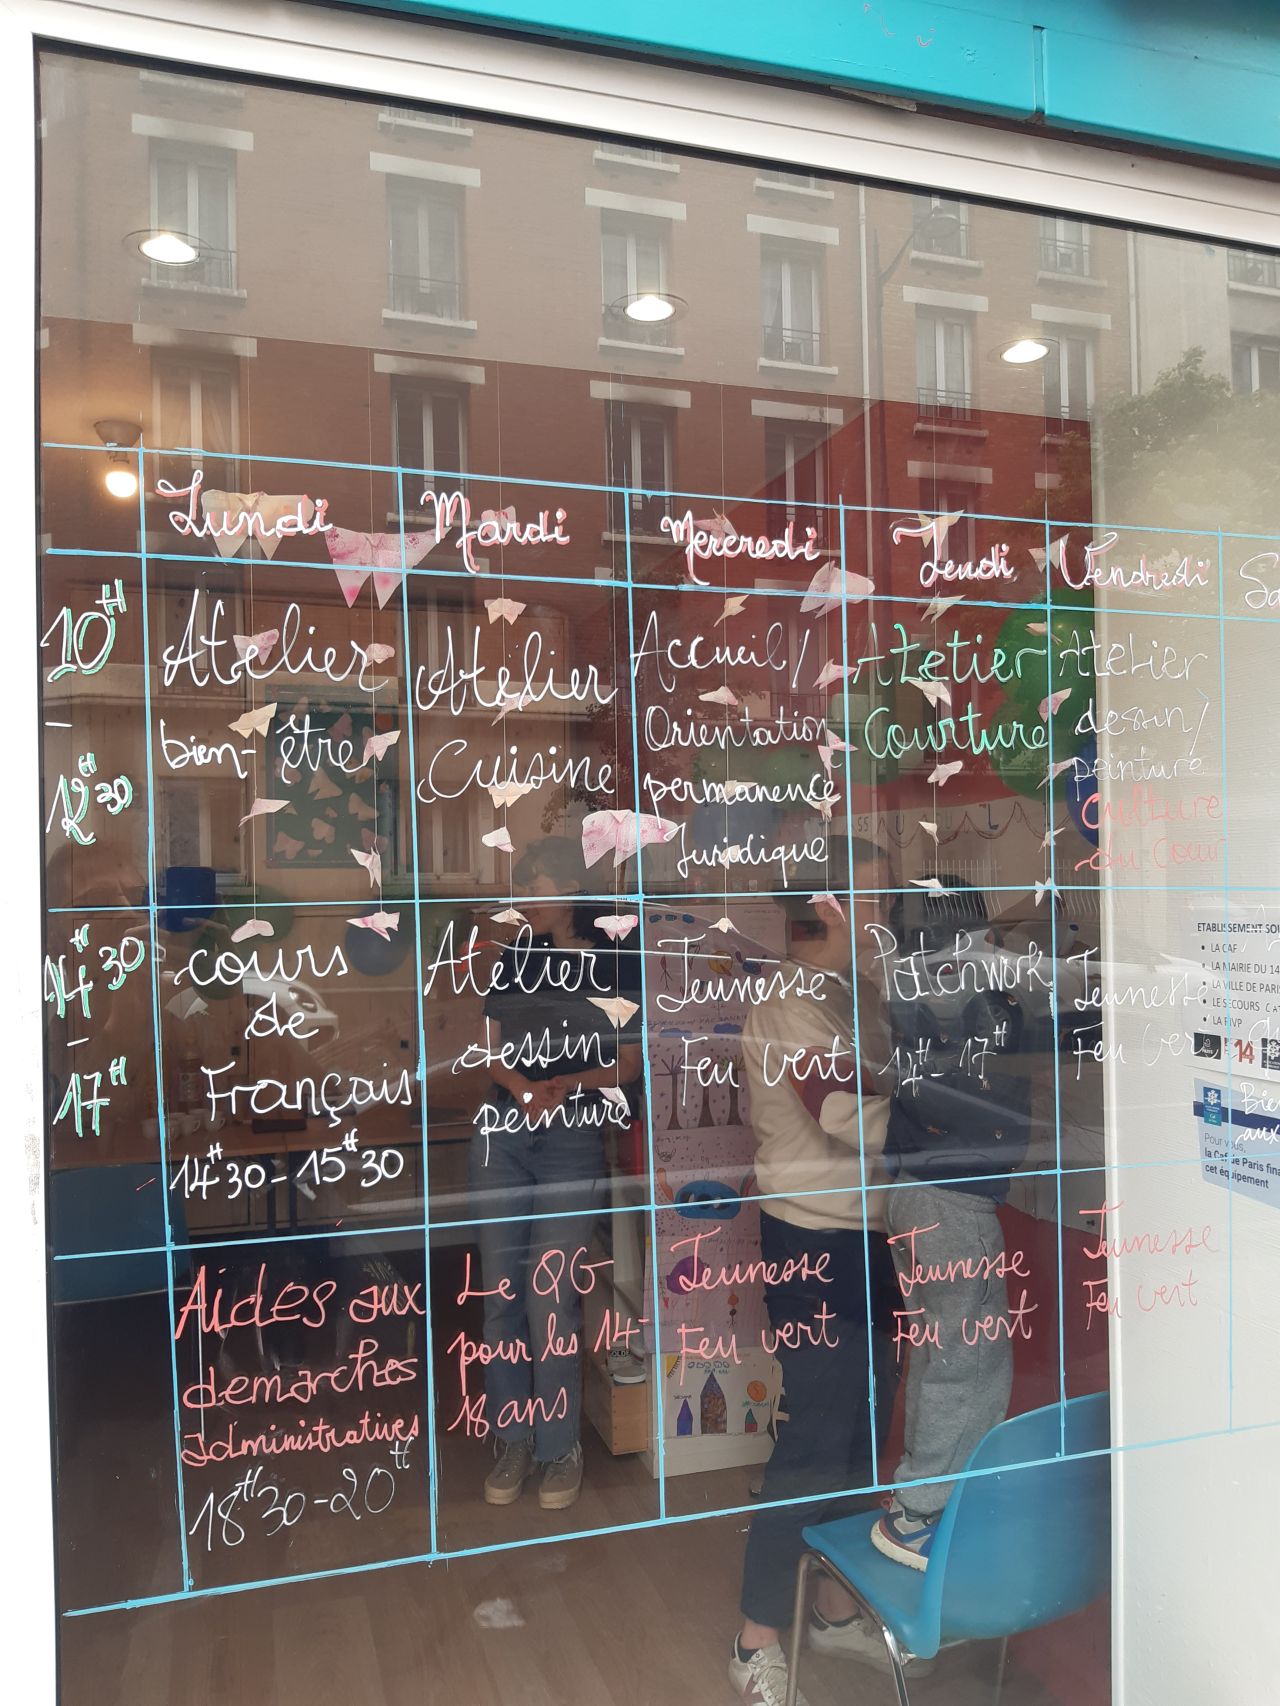 Lundi
Mardi
Mercredi
Jeudi
Vendredi
10H
-
12H30
Atelier
bien-être
Atelier
Cuisine
Accueil/
Orientation
permanence
Juridique
Atetier
Courture
Atelier
dessin/
peinture
Culture
du Cœur
14H30
-
17H
cours
de
Français
14H30-15H30
Atelier
dessin
peinture
Jeunesse
Feu vert
Patchwork
14H-17H
Jeunesse
Feu vert
Aides aux
demarches
administratives
18H30-20H
Le QG
pour les 14-
18 ans
Jeunesse
Feu vert
Jeunesse
Feu vert
Jeunesse
Feu vert
ETABLISSEMENT SOU
• LA CAF
• LA MAIRIE DU 14
• LA VILLE DE PARIS
• LE SECOURS CAT
14
Bie
aux
Pour vous,
la Caf de Paris fina
cet équipement